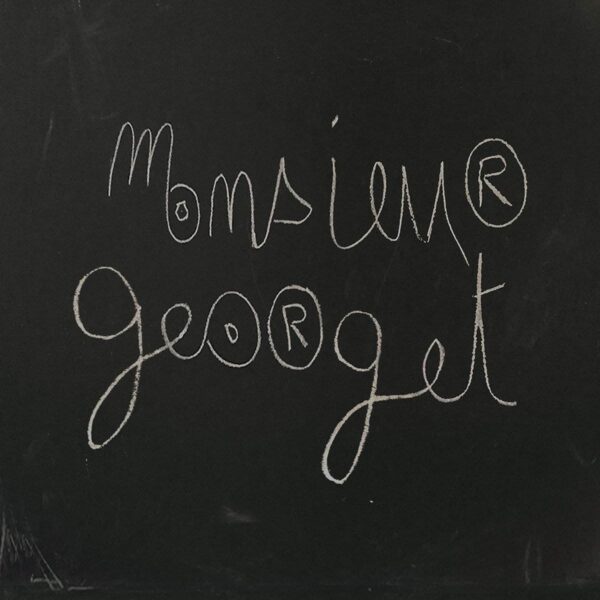 monsieuR
geoRget